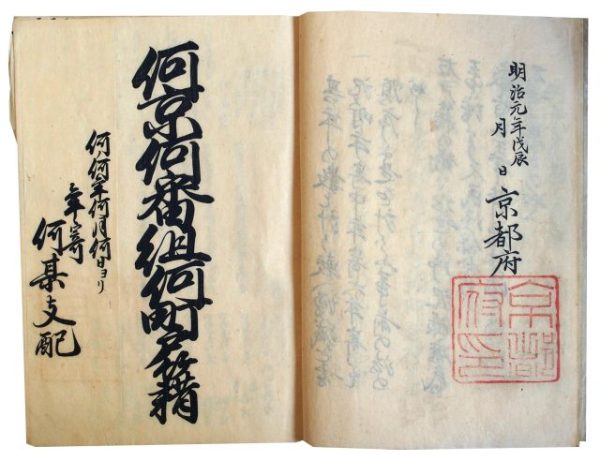 明治元年戊辰
月 日 京都府
京都
府印
何京何番組何町戸籍
何ノ何年何月何日ヨリ
年寄
何某支配